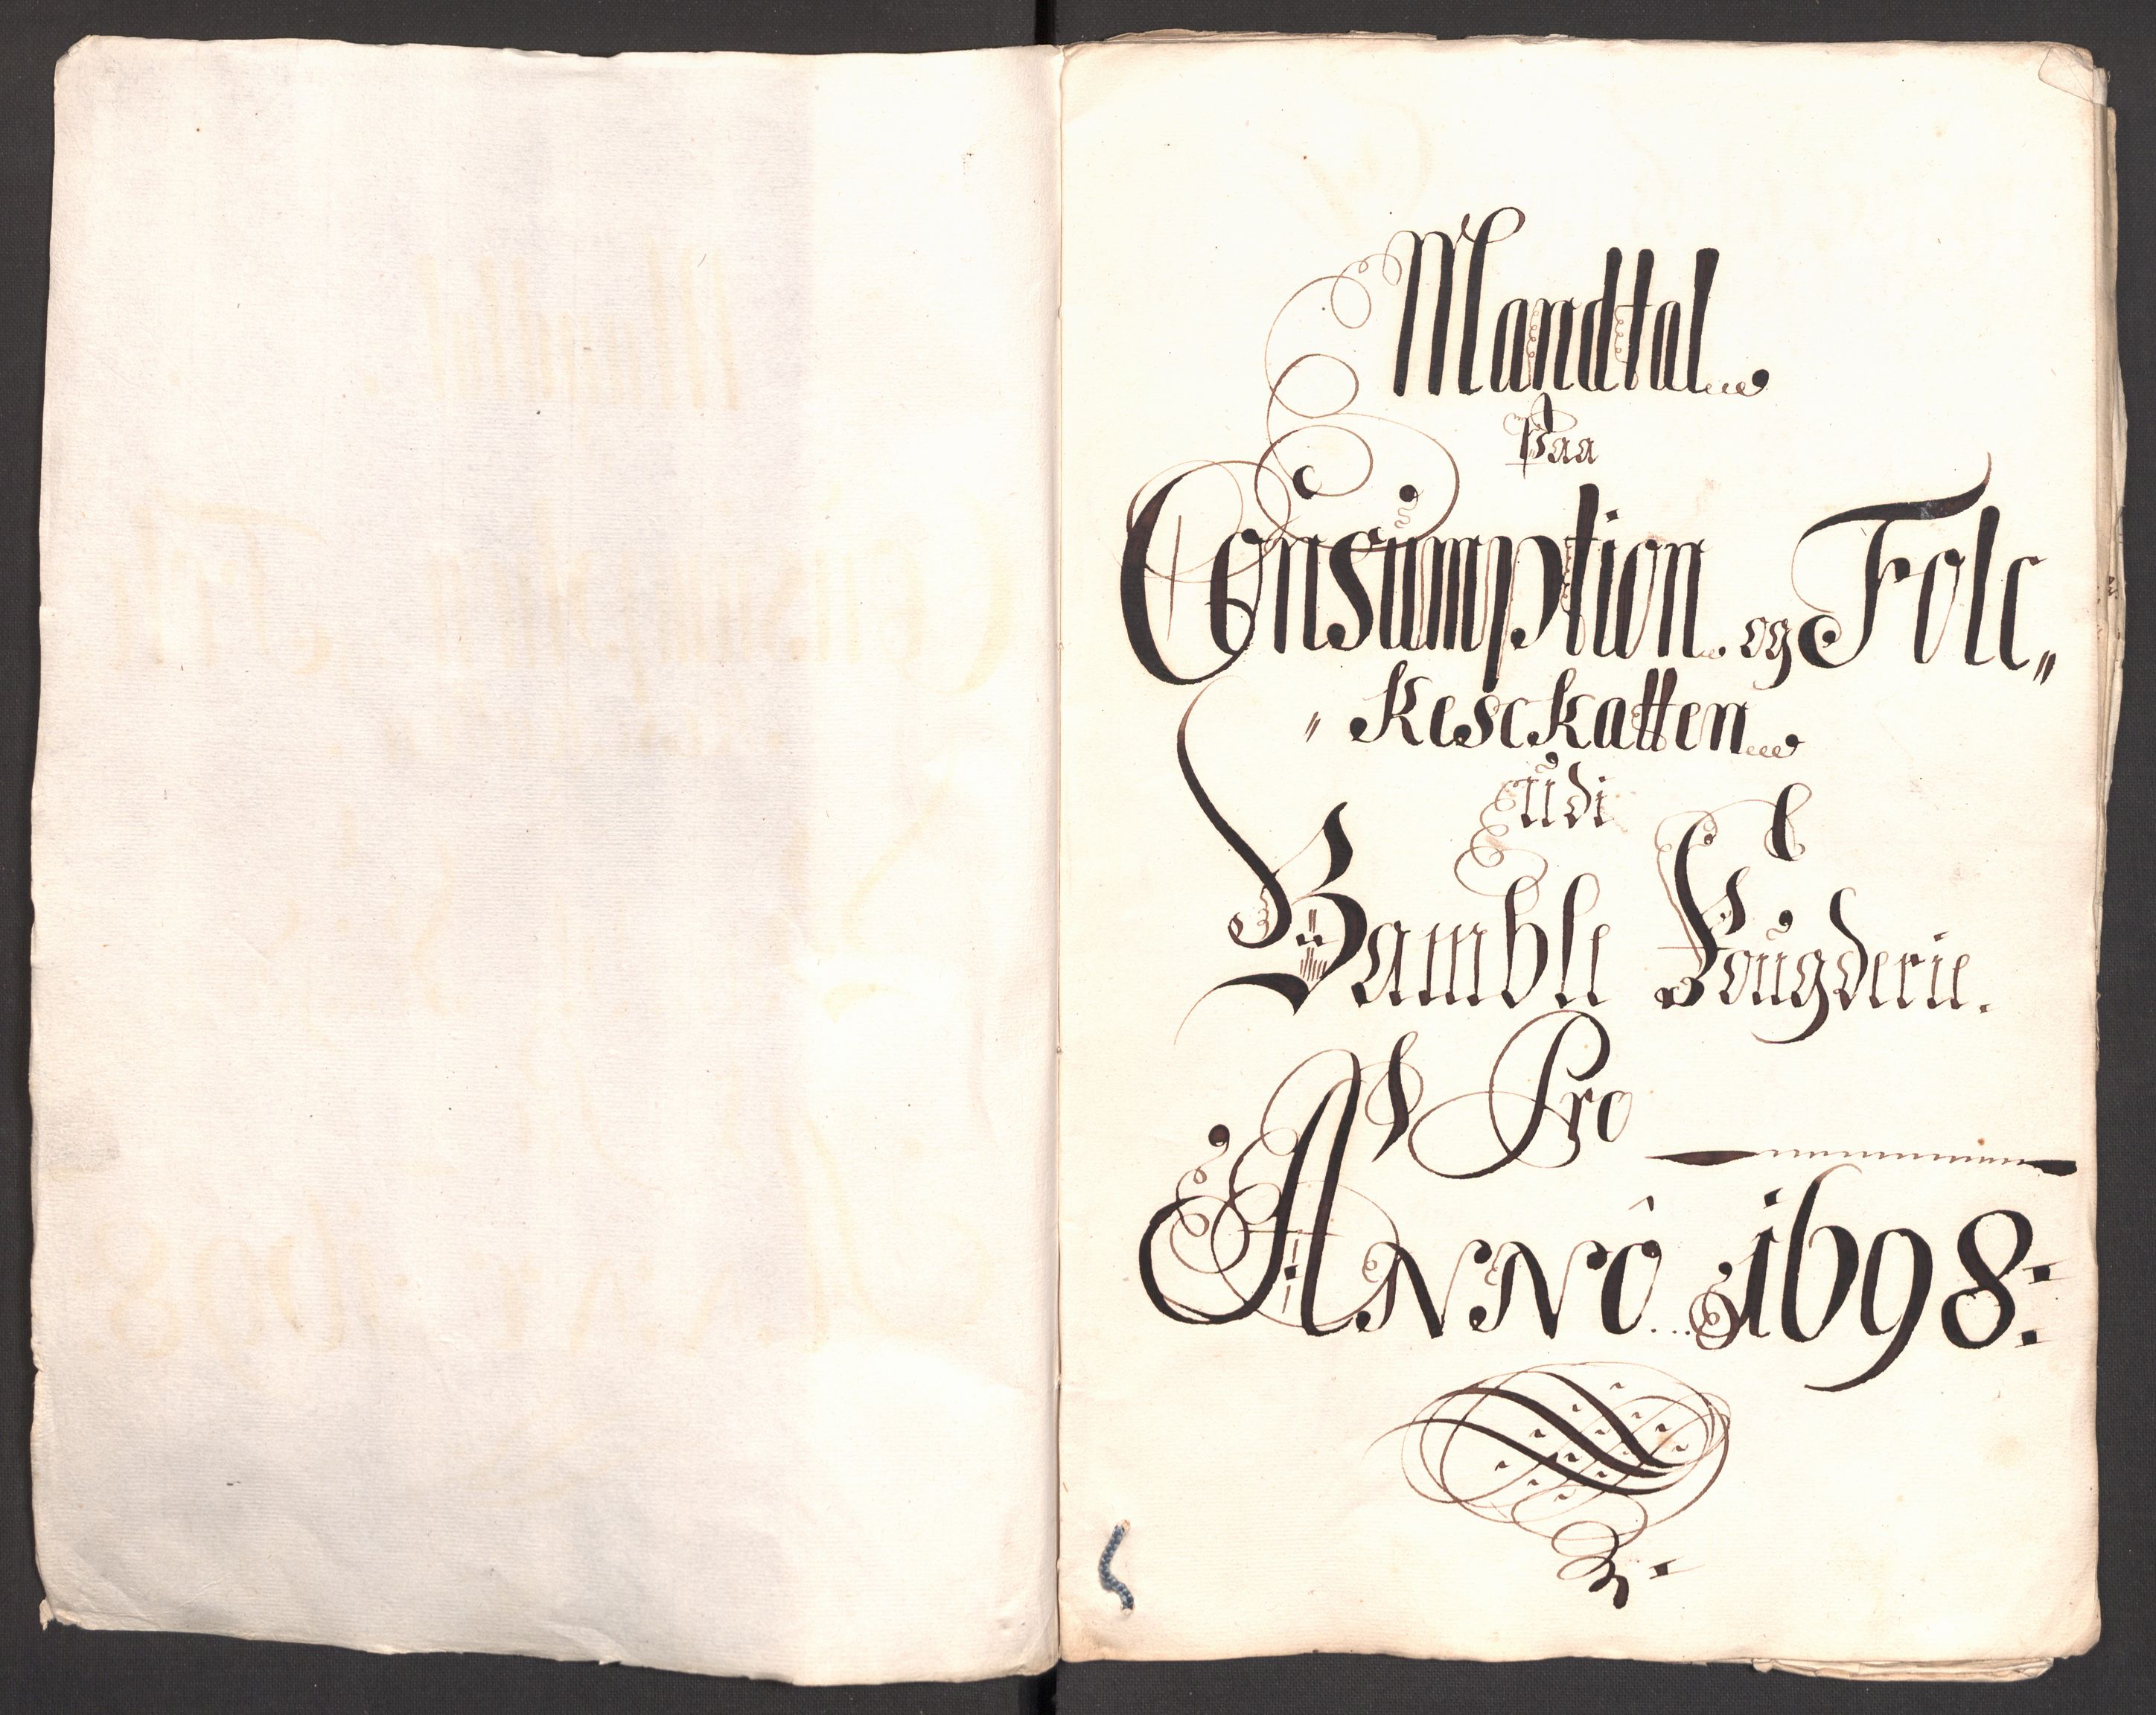 Mandtal
Paa
Consumption og Folc„
„ Keskatten
udi
Bamble Fougderie.
Pro
ANNO 1698: